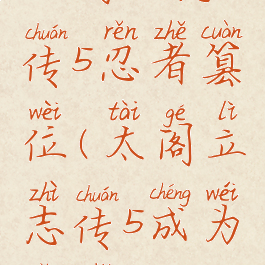 chuán rěn zhě cuàn
传5忍者篡
wèi tài gé lì
位(太阁立
zhì chuán chéng wéi
志传5成为